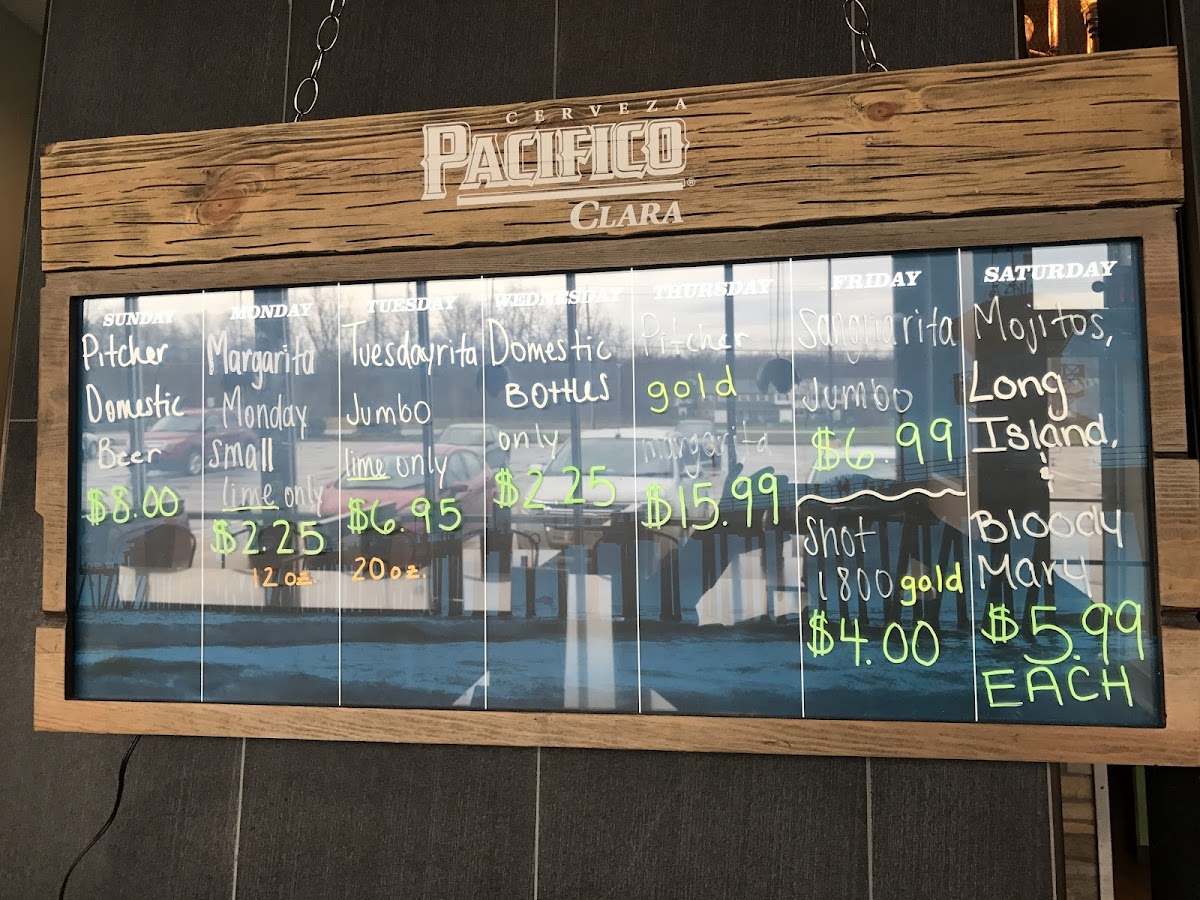 CERVEZA
PACIFICO®
CLARA
SUNDAY
Pitcher
Domestic
Beer
$8.00
MONDAY
Margarita
Monday
Small
lime only
$2.25
12 oz.
TUESDAY
Tuesdayrita
Jumbo
lime only
$6.95
20 oz.
WEDNESDAY
Domestic
Bottles
only
$2.25
THURSDAY
Pitcher
gold
margarita
$15.99
FRIDAY
Sangriarita
Jumbo
$6.99
Shot
1800 gold
$4.00
SATURDAY
Mojitos,
Long
Island,
&
Bloody
Mary
$5.99
EACH